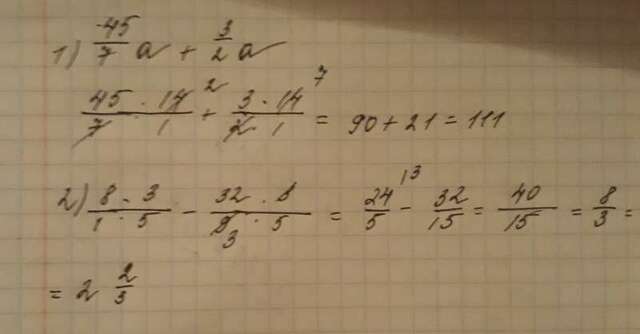 1) 45/7 a + 3/2 a
45 · 14 2 / 7 · 1 + 3 · 14 7 / 2 · 1 = 90 + 21 = 111
2) 8 · 3 / 1 · 5 − 32 · 1 / 9 3 · 5 = 24/5 13 − 32/15 = 40/15 = 8/3 =
= 2 2/3